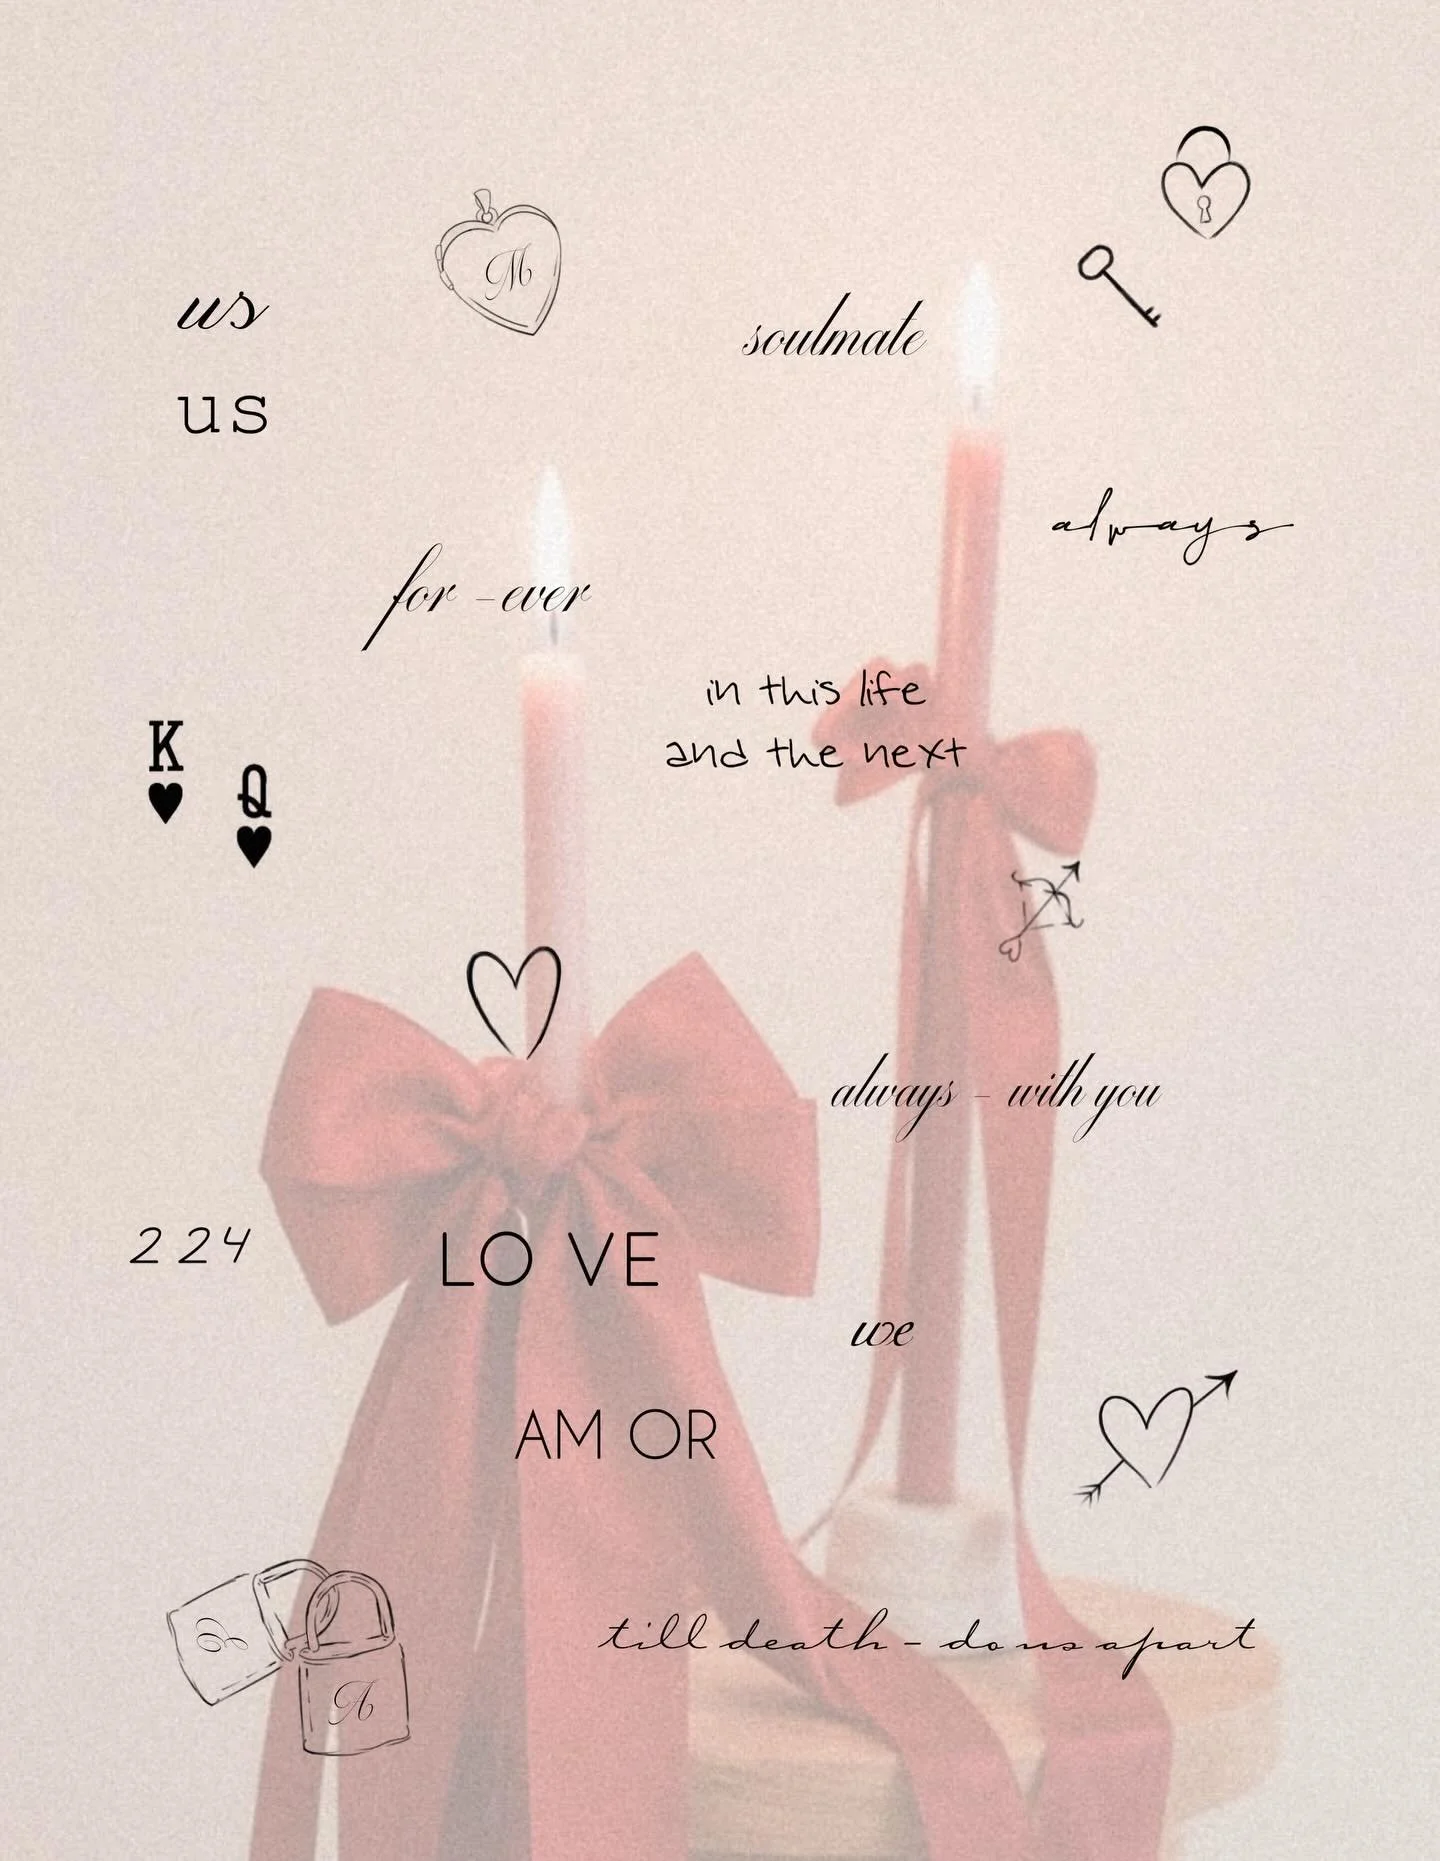 M
us
soulmate
us
always
for - ever
in this life
and the next
K
Q
always - with you
2 24
LO VE
we
AM OR
till death - do us apart
A